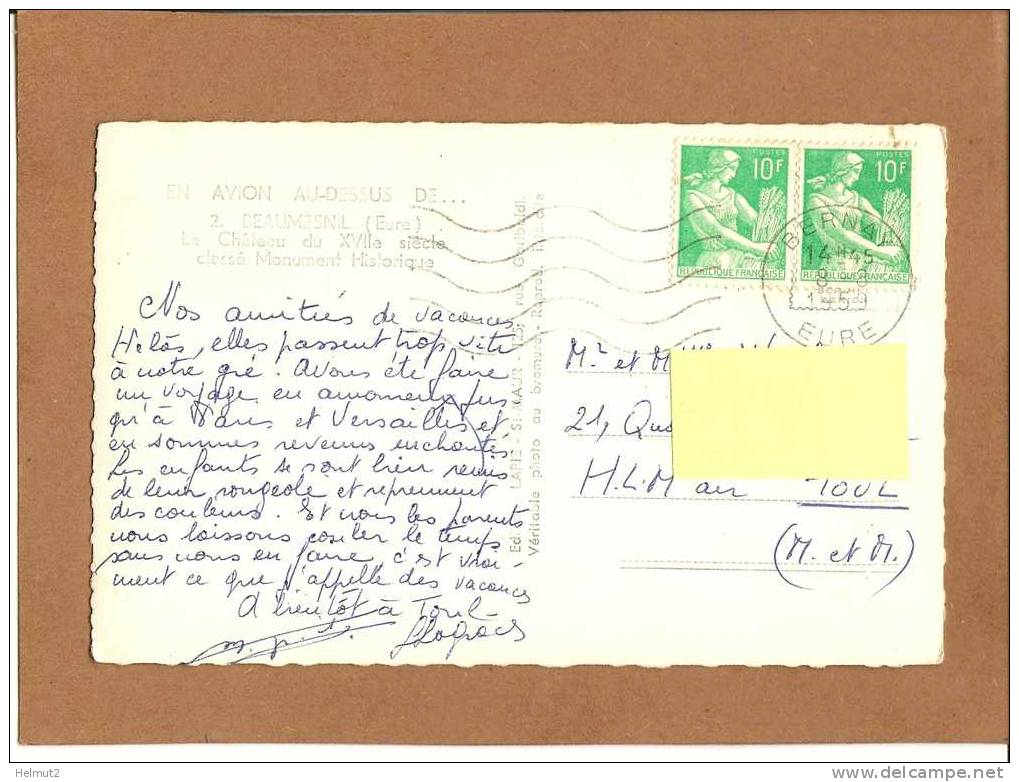 EN AVION AU-DESSUS DE...
2. BEAUMESNIL (Eure)
Le Château du XVIIe siècle
classé Monument Historique
Nos amitiés de vacances.
Hélas, elles passent trop vite
à notre gré. Avons été faire
un voyage en amoureux jus
qu'à Paris et Versailles et
en sommes revenus enchantés
Les enfants se sont bien remis
de leur rougeole et reprennent
des couleurs. Et nous les parents
nous laissons couler le temps
sans nous en faire, c'est vrai-
ment ce que j'appelle des vacances
A bientôt à Toul
Ed. LAPIE - St-MAUR rue Garibaldi.
Véritable photo au bromure - Reprod. interdite
POSTES
10F
REPUBLIQUE FRANÇAISE
POSTES
10F
REPUBLIQUE FRANÇAISE
BERNAY
14H45
EURE
Mr et
21,
H.L.M TOUL
(M. et M.)
Helmut2
delcampe.net